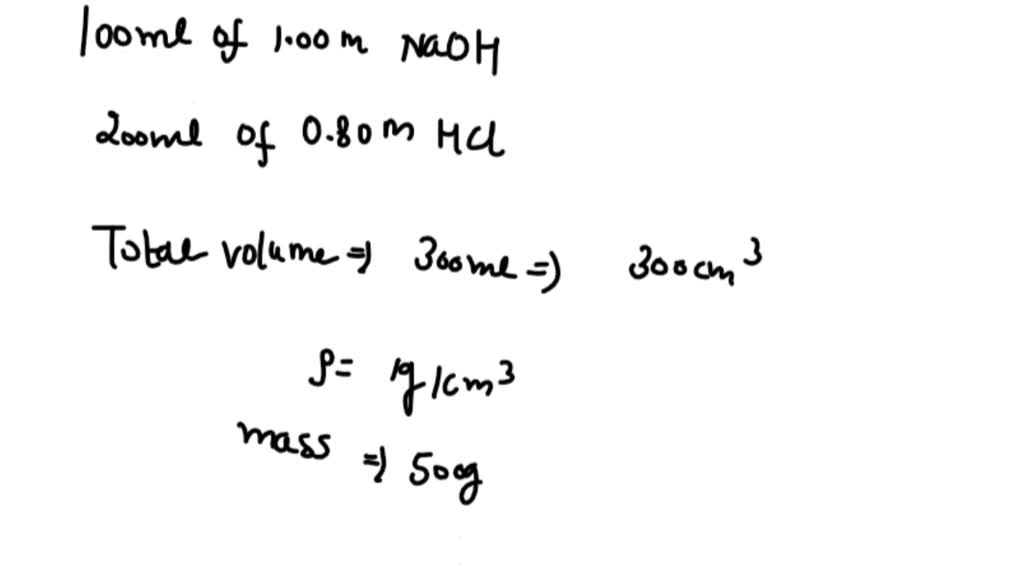 100ml of 1.00 m NaOH
200ml of 0.80 m HCl
Total volume ⇒ 300ml ⇒ 300cm³
ρ= 1g/cm³
mass ⇒ 500g